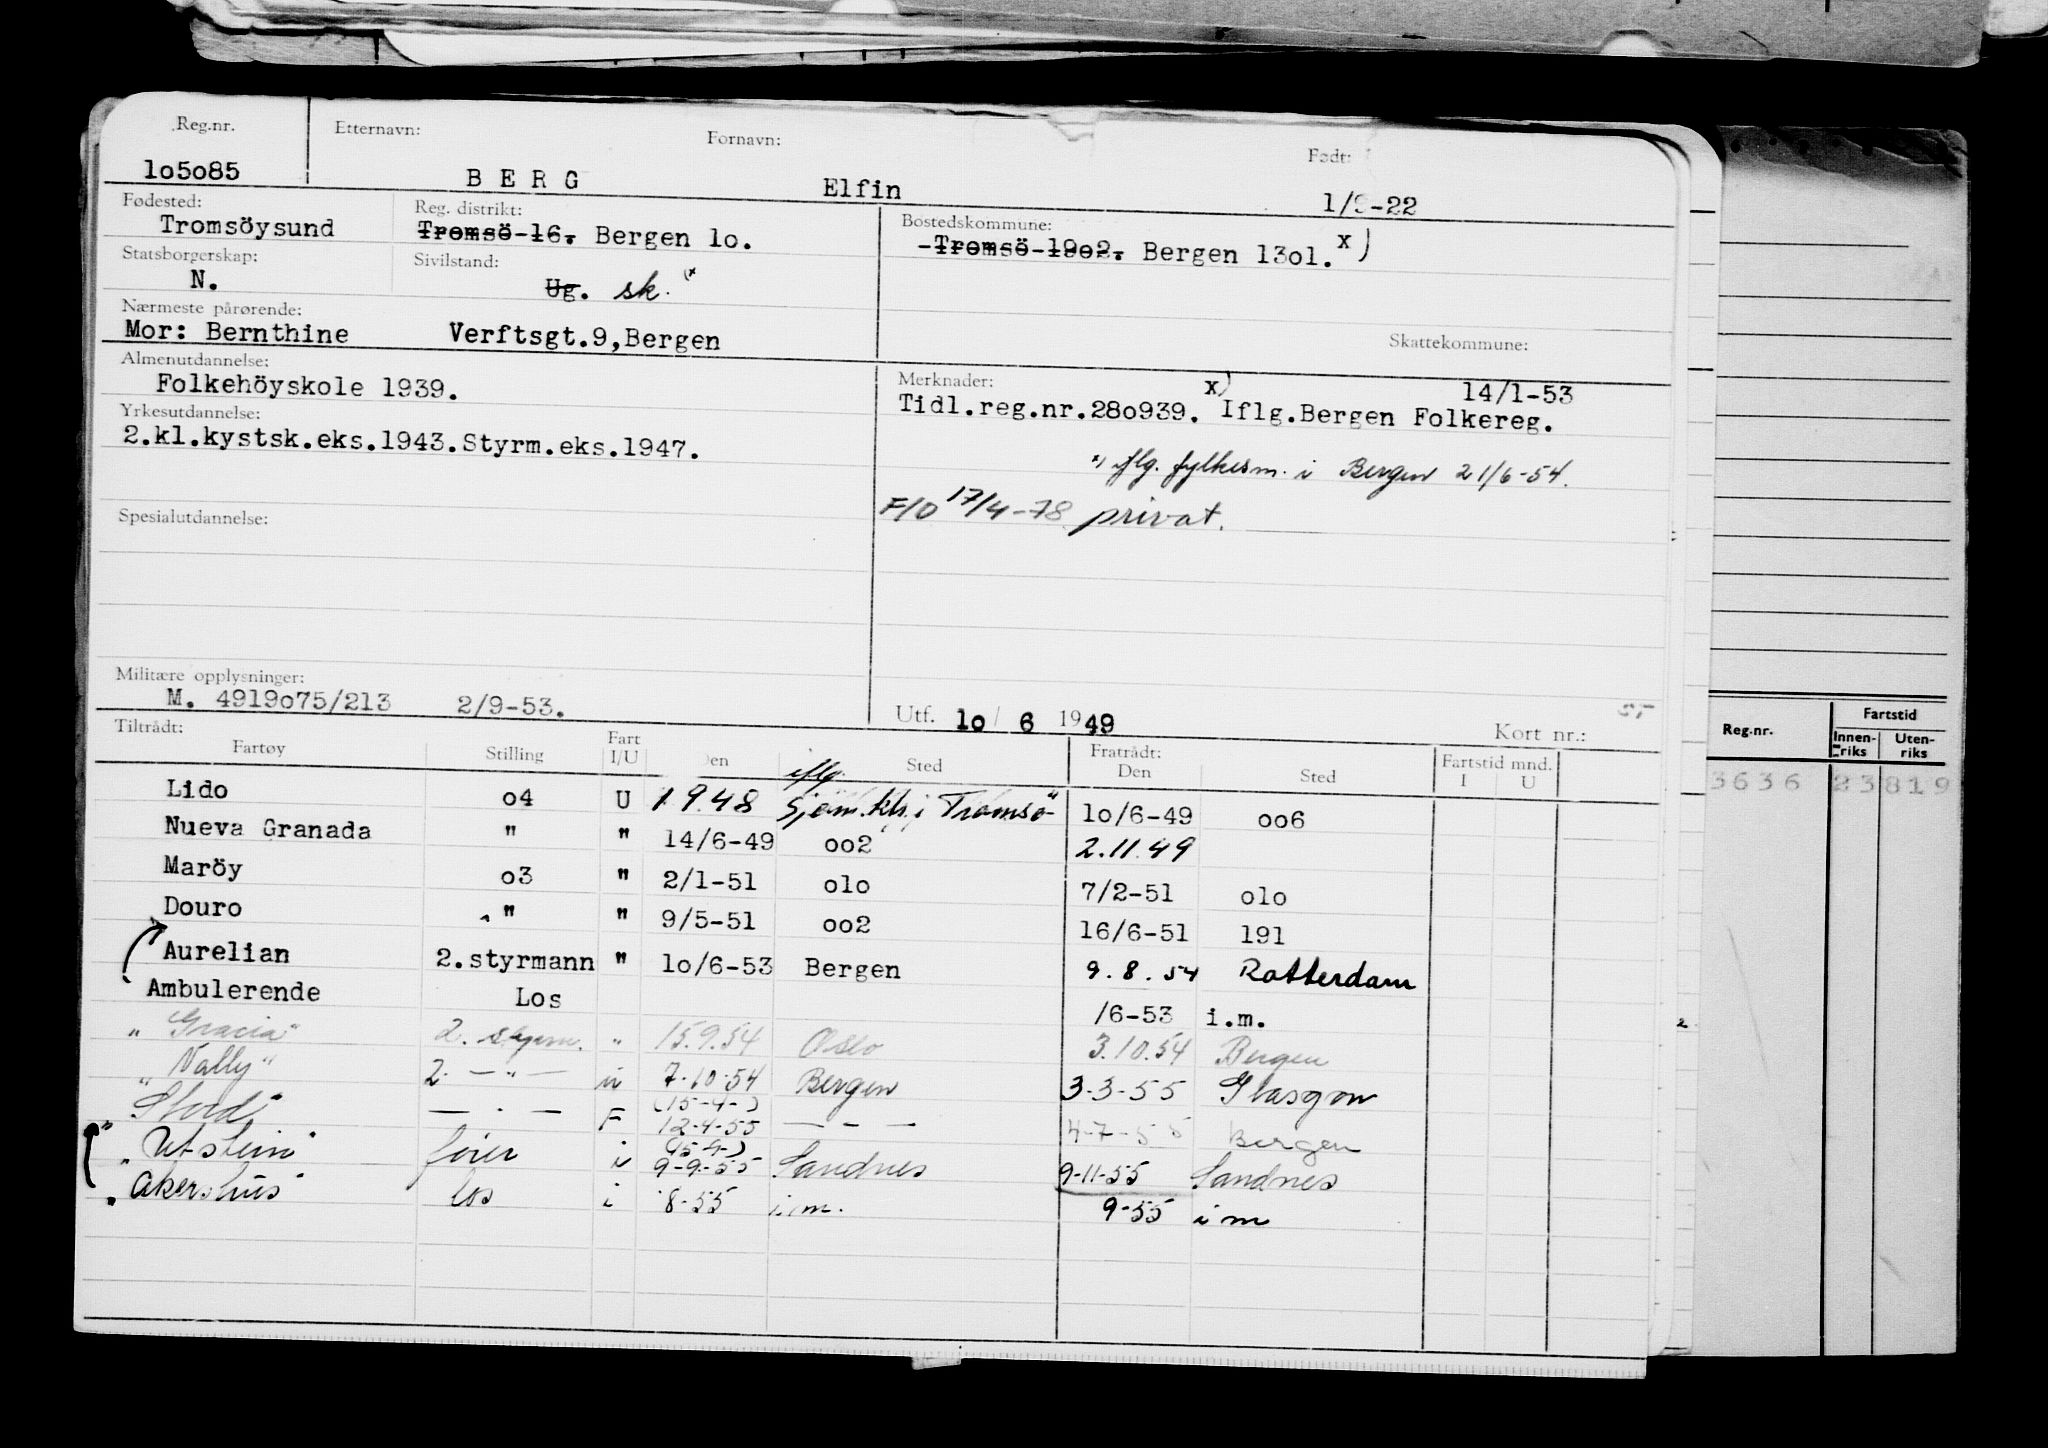 Reg.nr. Etternavn: Fornavn: Født:
lo5o85 B E R G Elfin 1/9-22
Fødested: Reg. distrikt: Bostedskommune:
Tromsöysund Tromsö-16. Bergen lo. -Tromsö-19o2. Bergen 13ol. x)
Statsborgerskap: Sivilstand:
N. Ug. sk. x
Nærmeste pårørende:
Mor: Bernthine Verftsgt.9,Bergen Skattekommune:
Almenutdannelse: Merknader: x) 14/1-53
Folkehöyskole 1939. Tidl.reg.nr.28o939. Iflg.Bergen Folkereg.
Yrkesutdannelse:
2.kl.kystsk.eks.1943.Styrm.eks.1947.
x) iflg. fylkesm. i Bergen 21/6-54.
F/O 17/4-78 privat.
Spesialutdannelse:
Militære opplysninger:
M. 4919o75/213 2/9-53.
Utf. lo/ 6 1949 Kort nr.:
Tiltrådt: Fratrådt:
Fartøy Stilling Fart I/U Den Sted Den Sted Fartstid mnd. I U
Lido o4 U 1.9.48 iflg. Sjöm.ktr. i Tromsö lo/6-49 oo6
Nueva Granada " " 14/6-49 oo2 2.11.49
Maröy o3 " 2/1-51 olo 7/2-51 olo
Douro " " 9/5-51 oo2 16/6-51 191
Aurelian 2.styrmann " lo/6-53 Bergen 9.8.54 Rotterdam
Ambulerende Los /6-53 i.m.
"Gracia" 2. styrm. " 15.9.54 Oslo 3.10.54 Bergen
"Nally" 2. — " — u 7-10-54 Bergen 3-3-55 Glasgow
(15-4-)
"Stord" — " — F 12-4-55 — " — 4-7-55 Bergen
(15-4-)
"Utstein" fører i 9-9-55 Sandnes 9-11-55 Sandnes
"Akershus" los i 8-55 i.m. 9-55 i m
Reg.nr. Fartstid
Innen-riks Uten-riks
3636 23 819